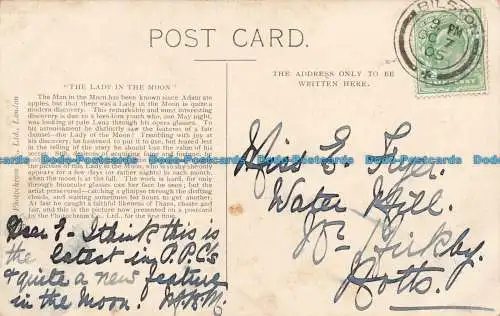 POST CARD.
BILSTON
8 PM
OC 7
05
"THE LADY IN THE MOON"
THE ADDRESS ONLY TO BE
WRITTEN HERE.
The Man in the Moon has been known since Adam ate
apples, but that there was a Lady in the Moon is quite a
modern discovery. This remarkable and most interesting
discovery is due to a lovelorn youth who, one May night,
was looking at pale Luna through his opera glasses. To
his astonishment he distinctly saw the features of a fair
damsel—the Lady of the Moon! Trembling with joy at
his discovery, he hastened to put it to use, but feared lest
in the telling of the story he should become the
appears for a few days (or rather nights) in each month,
when the moon is at the full. The work is hard, for only
through binocular glasses can her face be seen; but the
artist persevered—catching a glimpse through the drifting
clouds, and waiting sometimes for hours to get another.
At last he caught a faithful likeness of Diana, chaste and
fair, and this is the picture presented in a postcard by
the Photochrom Co., Ltd., for the first time.
Photochrom Co., Ltd., London
Miss E. Fryer.
Water Mill.
Nr. Kirkby.
Notts.
Dear F— I think this is
the latest in P.P.C's
& quite a new feature
in the Moon.
Bodo-Postcards